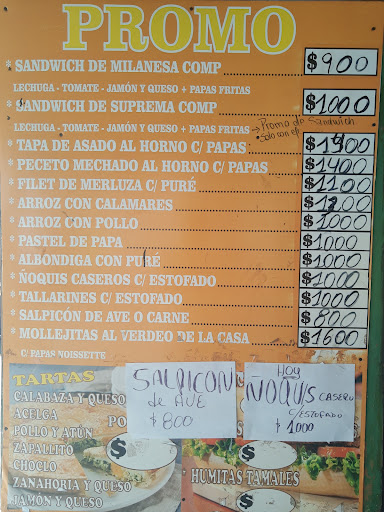 PROMO
* SANDWICH DE MILANESA COMP $900
LECHUGA - TOMATE - JAMÓN Y QUESO + PAPAS FRITAS
* SANDWICH DE SUPREMA COMP $1000
LECHUGA - TOMATE - JAMÓN Y QUESO + PAPAS FRITAS → Promo de Sandwich
* Solo con ef
* TAPA DE ASADO AL HORNO C/ PAPAS $1400
* PECETO MECHADO AL HORNO C/ PAPAS $1400
* FILET DE MERLUZA C/ PURÉ $1100
* ARROZ CON CALAMARES $1200
* ARROZ CON POLLO $1000
* PASTEL DE PAPA $1000
* ALBÓNDIGA CON PURE $1000
* ÑOQUIS CASEROS C/ ESTOFADO $1000
* TALLARINES C/ ESTOFADO $1000
* SALPICÓN DE AVE O CARNE $800
* MOLLEJITAS AL VERDEO DE LA CASA $1600
C/ PAPAS NOISSETTE
TARTAS
CALABAZA Y QUESO
ACELGA
POLLO Y ATÚN
ZAPALLITO
CHOCLO
ZANAHORIA Y QUESO
JAMÓN Y QUESO
PO
$
SALPICON
de AVE
$800
HOY
ÑOQUIS CASERO
C/ESTOFADO
$1000
$
HUMITAS TAMALES
$